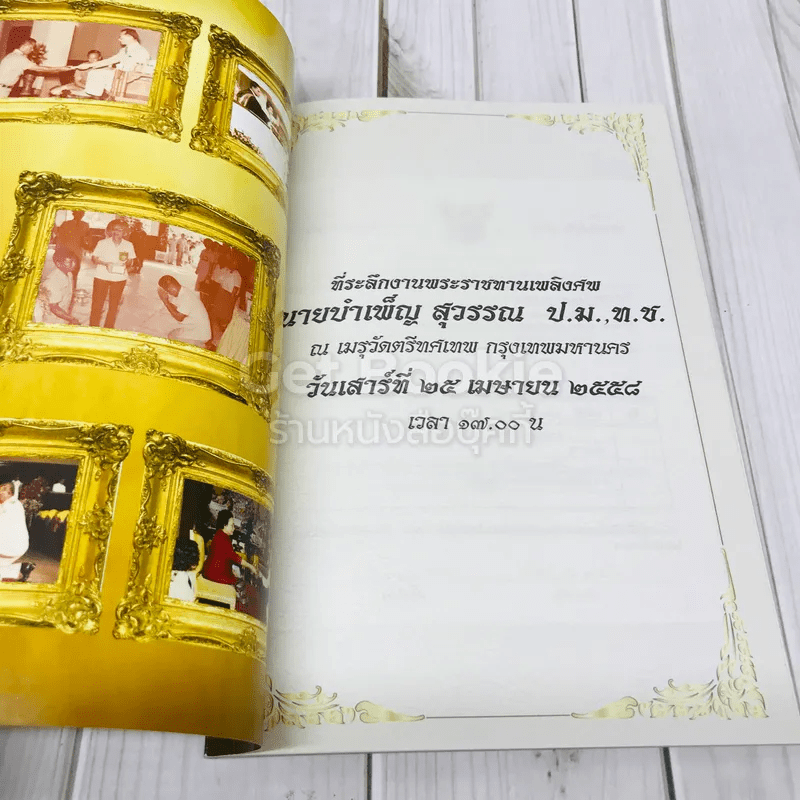 ที่ระลึกงานพระราชทานเพลิงศพ
นายบำเพ็ญ สุวรรณ ป.ม.,ท.ช.
ณ เมรุวัดตรีทศเทพ กรุงเทพมหานคร
Get Bookie
วันเสาร์ที่ ๒๕ เมษายน ๒๕๕๘
เวลา ๑๗.๐๐ น
ร้านหนังสือบุ๊คกี้